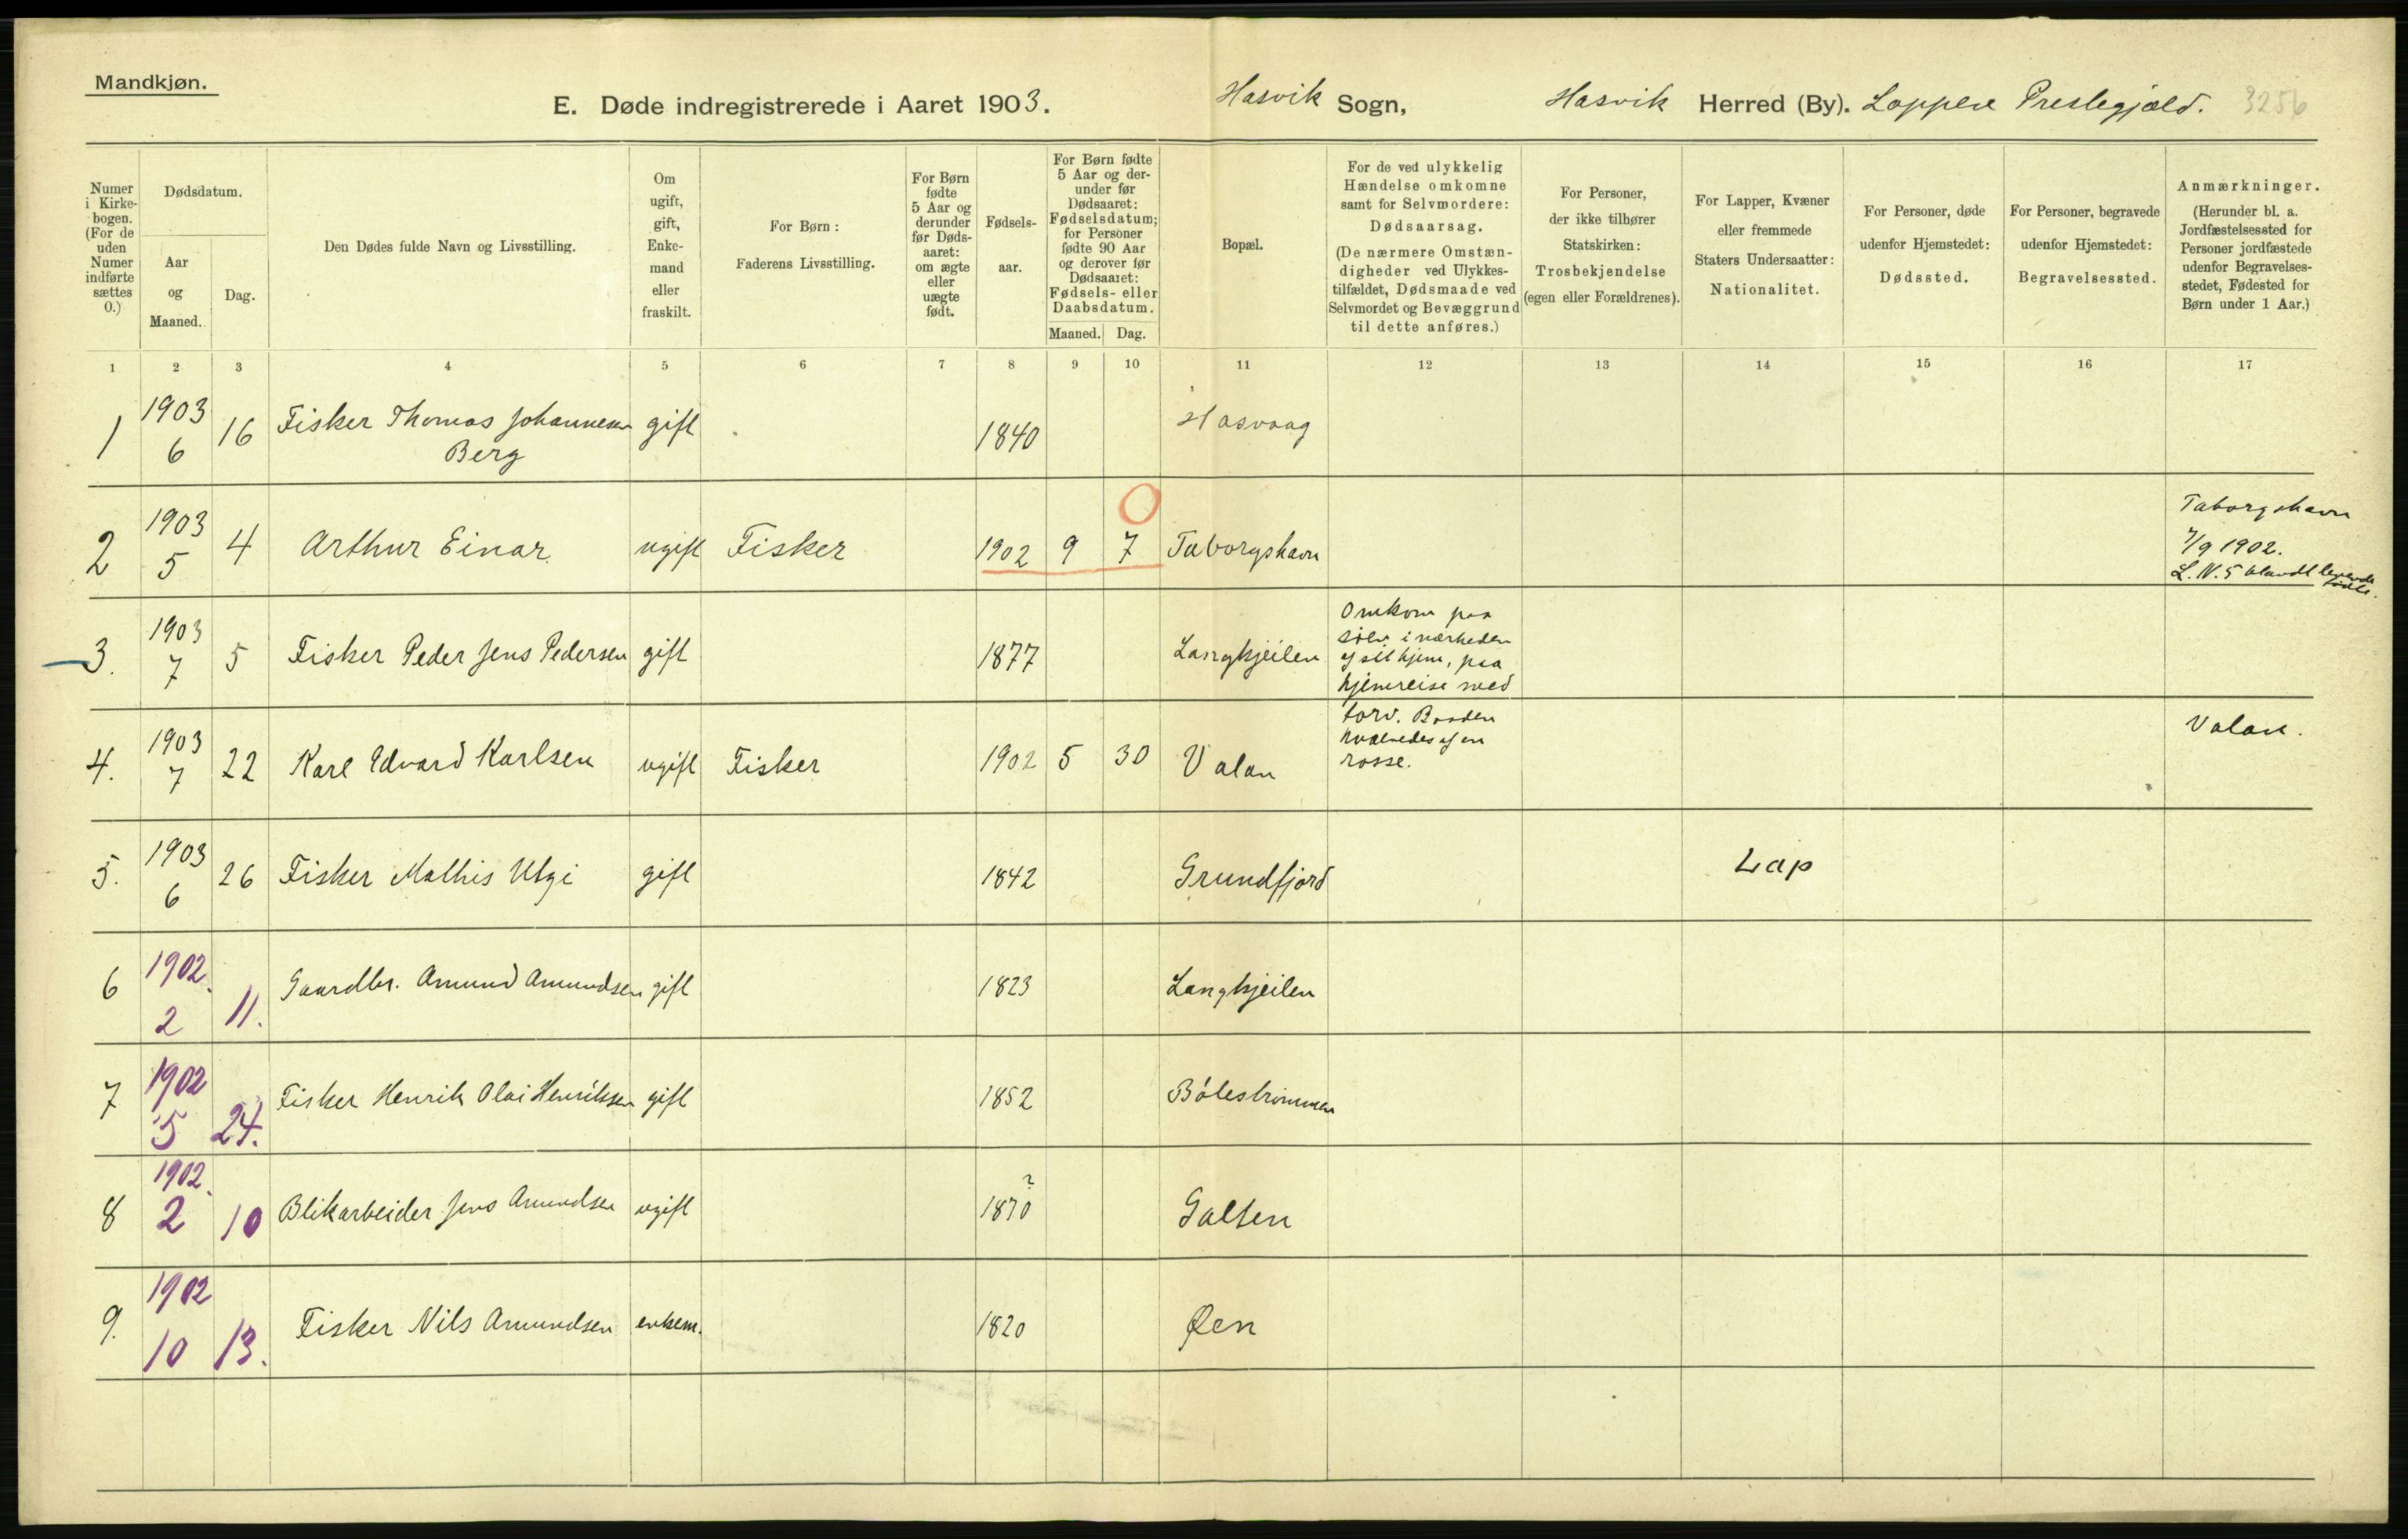 Mandkjøn.
E. Døde indregistrerede i Aaret 1903. Hasvik Sogn, Hasvik Herred (By). Loppen Prestegjæld. 3256
Numer i Kirkebogen. (For de uden Numer indførte sættes 0.)
Dødsdatum.
Aar og Maaned.
Dag.
Den Dødes fulde Navn og Livsstilling.
Om ugift, gift, Enkemand eller fraskilt.
For Børn: Faderens Livsstilling.
For Børn fødte 5 Aar og derunder før Dødsaaret: om ægte eller uægte født.
Fødselsaar.
For Børn fødte 5 Aar og derunder før Dødsaaret: Fødselsdatum; for Personer fødte 90 Aar og derover før Dødsaaret: Fødsels- eller Daabsdatum.
Maaned. Dag.
Bopæl.
For de ved ulykkelig Hændelse omkomne samt for Selvmordere: Dødsaarsag. (De nærmere Omstændigheder ved Ulykkestilfældet, Dødsmaade ved Selvmordet og Bevæggrund til dette anføres.)
For Personer, der ikke tilhører Statskirken: Trosbekjendelse (egen eller Forældrenes).
For Lapper, Kvæner eller fremmede Staters Undersaatter: Nationalitet.
For Personer, døde udenfor Hjemstedet: Dødssted.
For Personer, begravede udenfor Hjemstedet: Begravelsessted.
Anmærkninger. (Herunder bl. a. Jordfæstelsessted for Personer jordfæstede udenfor Begravelsesstedet, Fødested for Børn under 1 Aar.)
1 2 3 4 5 6 7 8 9 10 11 12 13 14 15 16 17
1 1903 6 16 Fisker Thomas Johannesen Berg gift 1840 Hasvaag
2 1903 5 4 Arthur Einar ugift Fisker 1902 9 7 Taborgshavn Taborgshavn 7/9 1902. L. N. 5 blandt levende fødte.
3. 1903 7 5 Fisker Peder Jens Pedersen gift 1877 Langkjeilen Omkom paa sjøen i nærheden af sit hjem, paa hjemreise med torv. Baaden hvælvedes af en rosse.
4. 1903 7 22 Karl Edvard Karlsen ugift Fisker 1902 5 30 Valan Valan.
5. 1903 6 26 Fisker Mathis Utgi gift 1842 Grundfjord Lap
6 1902. 2 11. Gaardbr. Amund Amundsen gift 1823 Langkjeilen
7 1902 5 24. Fisker Henrik Olai Henriksen gift 1852 Bølestrømmen
8 1902. 2 10 Blikarbeider Jens Amundsen ugift 1870 ? Galten
9. 1902 10 13. Fisker Nils Amundsen enkem. 1820 Øen